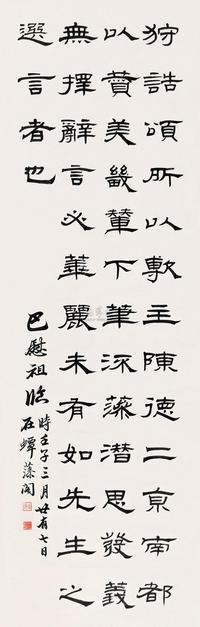 狩誥頌所以敷主陳德二京南都
以贊美畿輦下筆流藻潛思發義
無擇辭言必華麗未有如先生之
選言者也
巴慰祖臨
時壬子三月廿有七日
在蟫藻閣